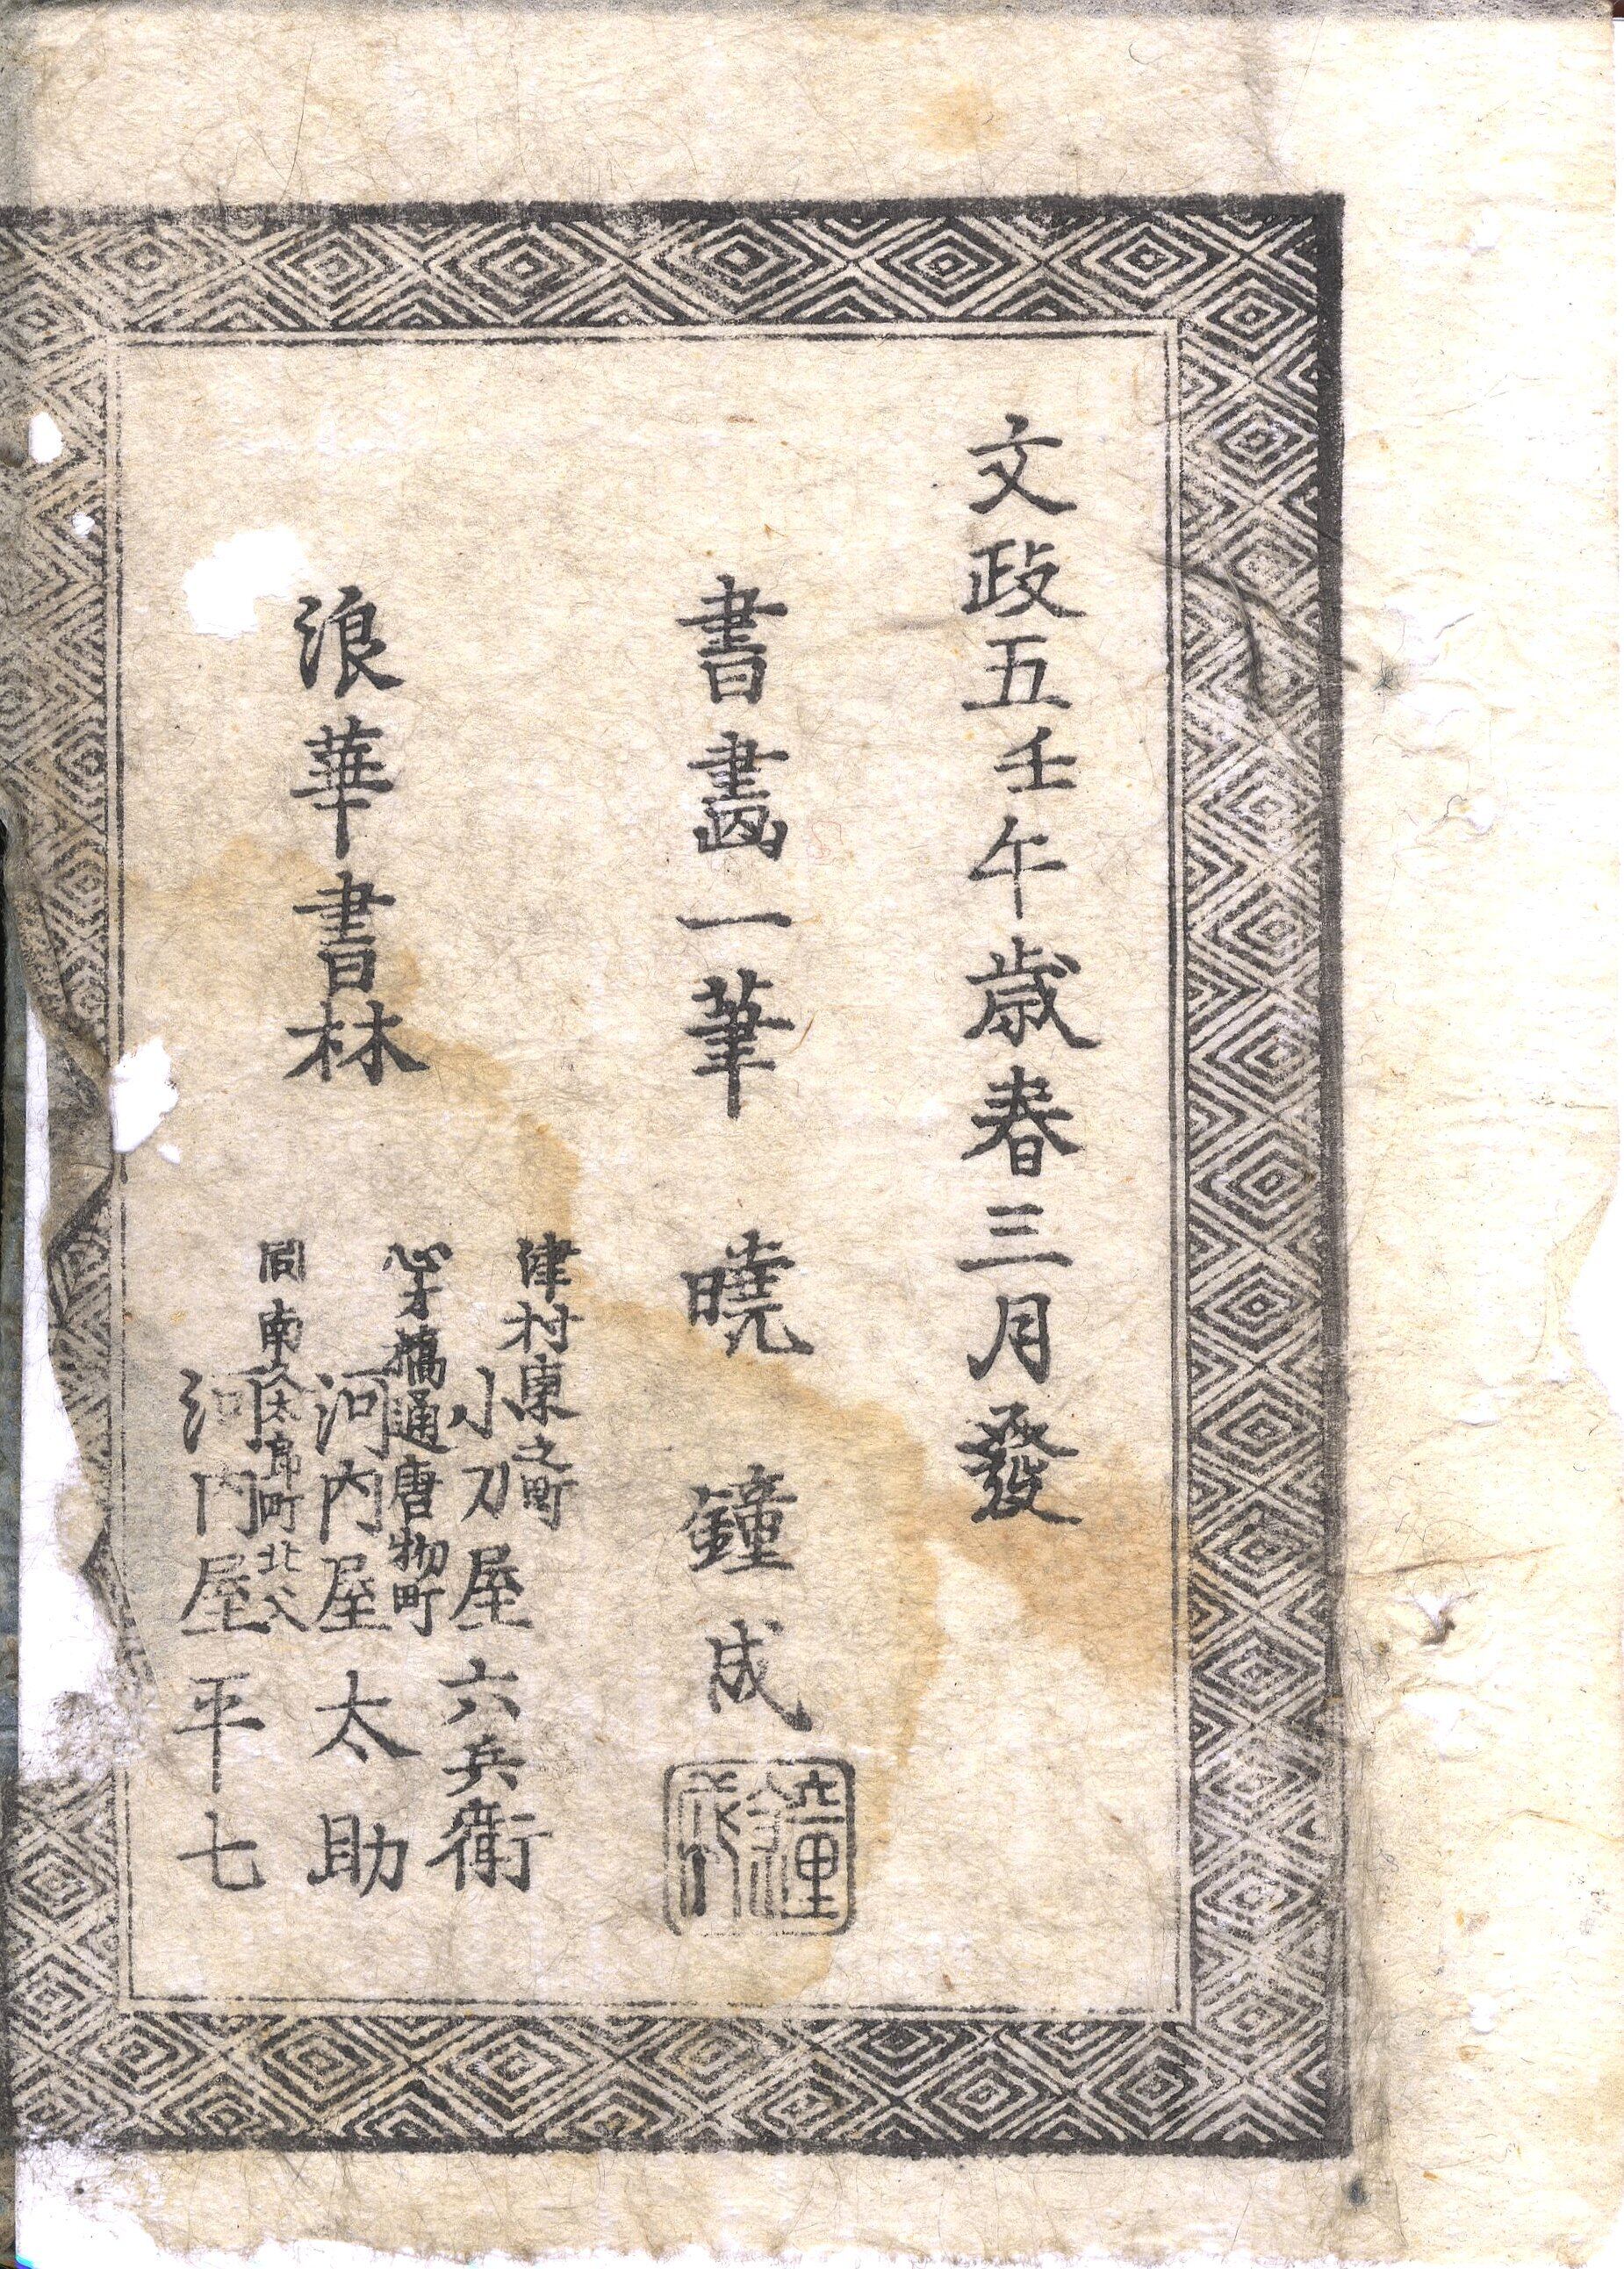 文政五壬午歳春三月發
書畵一筆 曉 鐘成
浪華書林
津村東之町
小刀屋六兵衛
心才橋通唐物町
河内屋太助
同 南久太郎町北入
河内屋平七